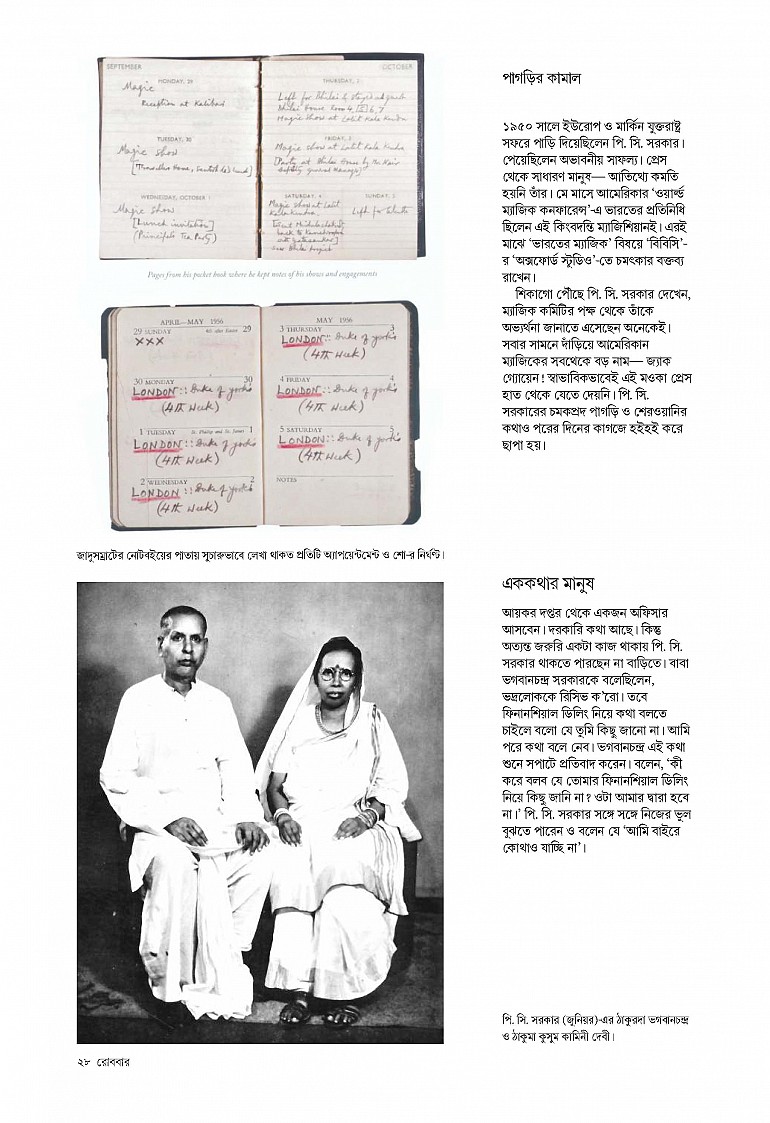 SEPTEMBER
MONDAY, 29
Magic
Reception at Kalibari
TUESDAY, 30
Magic Show
WEDNESDAY, OCTOBER 1
Magic Show
[Lunch invitation]
(Principals Tea Party)
OCTOBER
THURSDAY, 2
Left for Bhilai &
Bhilai House Room 4, 5, 6, 7
Magic Show at Lalit Kala Kendra
FRIDAY, 3
Magic Show at Lalit Kala Kendra
[Party at Bhilai House by Mr Nair
SATURDAY, 4
Magic Show at Lalit
Kala Kendra.
SUNDAY, 5
Left for
Pages from his pocket book where he kept notes of his shows and engagements
APRIL—MAY 1956
29 SUNDAY 4th after Easter 29
XXX
30 MONDAY 30
LONDON :: Duke of york's
(4th Week)
1 TUESDAY St. Philip and St. James 1
LONDON :: Duke of york's
(4th Week)
2 WEDNESDAY 2
LONDON :: Duke of york's
(4th Week)
MAY 1956
3 THURSDAY 3
LONDON :: Duke of york's
(4th Week)
4 FRIDAY 4
LONDON :: Duke of york's
(4th Week)
5 SATURDAY 5
LONDON :: Duke of york's
(4th Week)
NOTES
জাদুসম্রাটের নোটবইয়ের পাতায় সুচারুভাবে লেখা থাকত প্রতিটি অ্যাপয়েন্টমেন্ট ও শো-র নির্ঘণ্ট।
পাগড়ির কামাল
১৯৫০ সালে ইউরোপ ও মার্কিন যুক্তরাষ্ট্র
সফরে পাড়ি দিয়েছিলেন পি. সি. সরকার।
পেয়েছিলেন অভাবনীয় সাফল্য। প্রেস
থেকে সাধারণ মানুষ— আতিথ্যে কমতি
হয়নি তাঁর। মে মাসে আমেরিকার ‘ওয়ার্ল্ড
ম্যাজিক কনফারেন্স’-এ ভারতের প্রতিনিধি
ছিলেন এই কিংবদন্তি ম্যাজিশিয়ানই। এরই
মাঝে ‘ভারতের ম্যাজিক’ বিষয়ে ‘বিবিসি’-
র ‘অক্সফোর্ড স্টুডিও’-তে চমৎকার বক্তব্য
রাখেন।
শিকাগো পৌঁছে পি. সি. সরকার দেখেন,
ম্যাজিক কমিটির পক্ষ থেকে তাঁকে
অভ্যর্থনা জানাতে এসেছেন অনেকেই।
সবার সামনে দাঁড়িয়ে আমেরিকান
ম্যাজিকের সবথেকে বড় নাম— জ্যাক
গ্যোয়েন! স্বাভাবিকভাবেই এই মওকা প্রেস
হাত থেকে যেতে দেয়নি। পি. সি.
সরকারের চমকপ্রদ পাগড়ি ও শেরওয়ানির
কথাও পরের দিনের কাগজে হইহই করে
ছাপা হয়।
এককথার মানুষ
আয়কর দপ্তর থেকে একজন অফিসার
আসবেন। দরকারি কথা আছে। কিন্তু
অত্যন্ত জরুরি একটা কাজ থাকায় পি. সি.
সরকার থাকতে পারছেন না বাড়িতে। বাবা
ভগবানচন্দ্র সরকারকে বলেছিলেন,
ভদ্রলোককে রিসিভ ক’রো। তবে
ফিনানশিয়াল ডিলিং নিয়ে কথা বলতে
চাইলে বলো যে তুমি কিছু জানো না। আমি
পরে কথা বলে নেব। ভগবানচন্দ্র এই কথা
শুনে সপাটে প্রতিবাদ করেন। বলেন, ‘কী
করে বলব যে তোমার ফিনানশিয়াল ডিলিং
নিয়ে কিছু জানি না? ওটা আমার দ্বারা হবে
না।’ পি. সি. সরকার সঙ্গে সঙ্গে নিজের ভুল
বুঝতে পারেন ও বলেন যে ‘আমি বাইরে
কোথাও যাচ্ছি না’।
পি. সি. সরকার (জুনিয়র)-এর ঠাকুরদা ভগবানচন্দ্র
ও ঠাকুমা কুসুম কামিনী দেবী।
২৮ রোববার